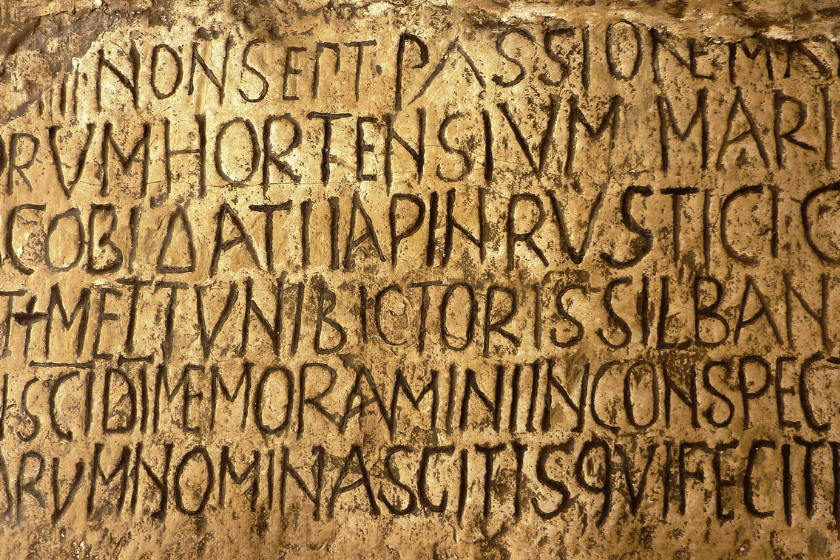 IIII NON SEPT · PASSIONE MA
ORVM HORTENSIVM MARI
ACOBI DATI IAPIN RVSTICI C
T + METTVNI BICTORIS SILBAN
SCI DI MEMORAMINI IN CONSPEC
ORVM NOMINA SCITIS QVI FECIT